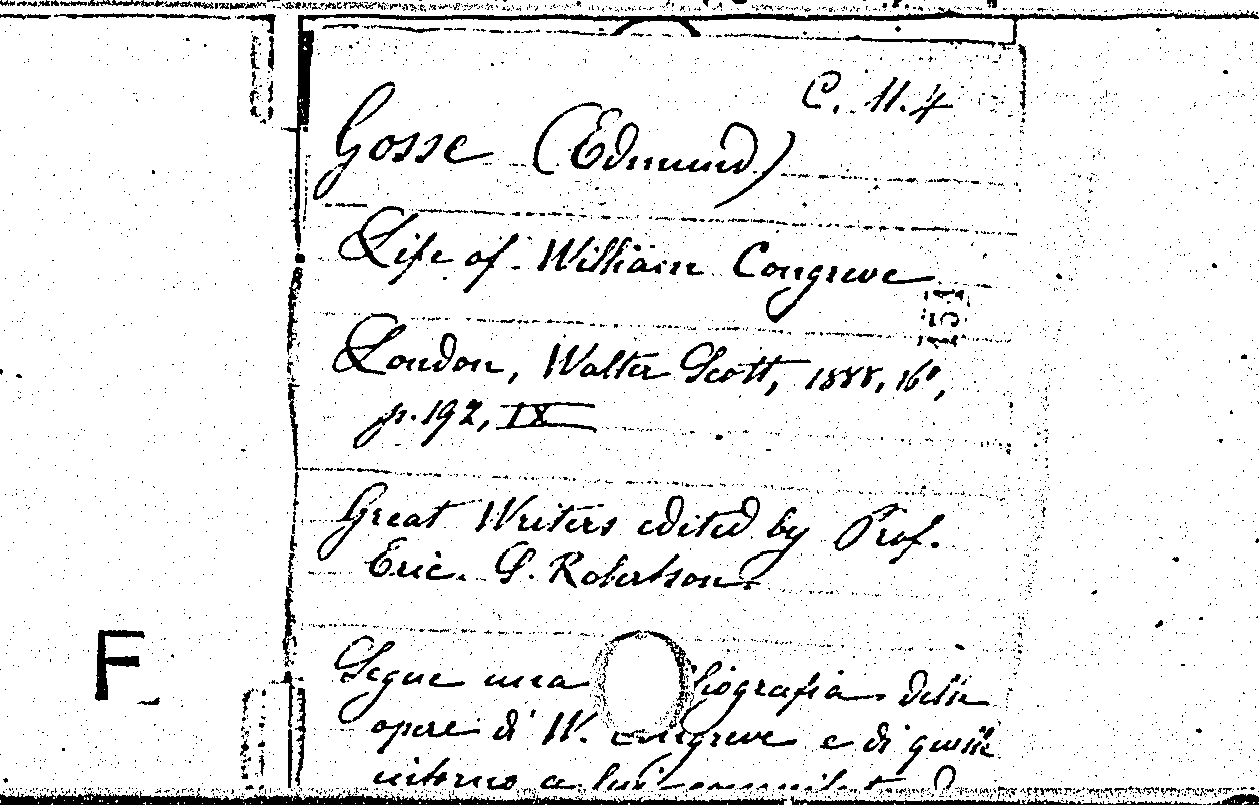 C. 11.4
Gosse (Edmund)
Life of William Congreve
151
London, Walter Scott, 1888, 16°,
p. 192, IX
Great Writers edited by Prof.
Eric. S. Robertson.
Segue una bliografia delle
opere di W. Congreve e di quelle
intorno a lui
F